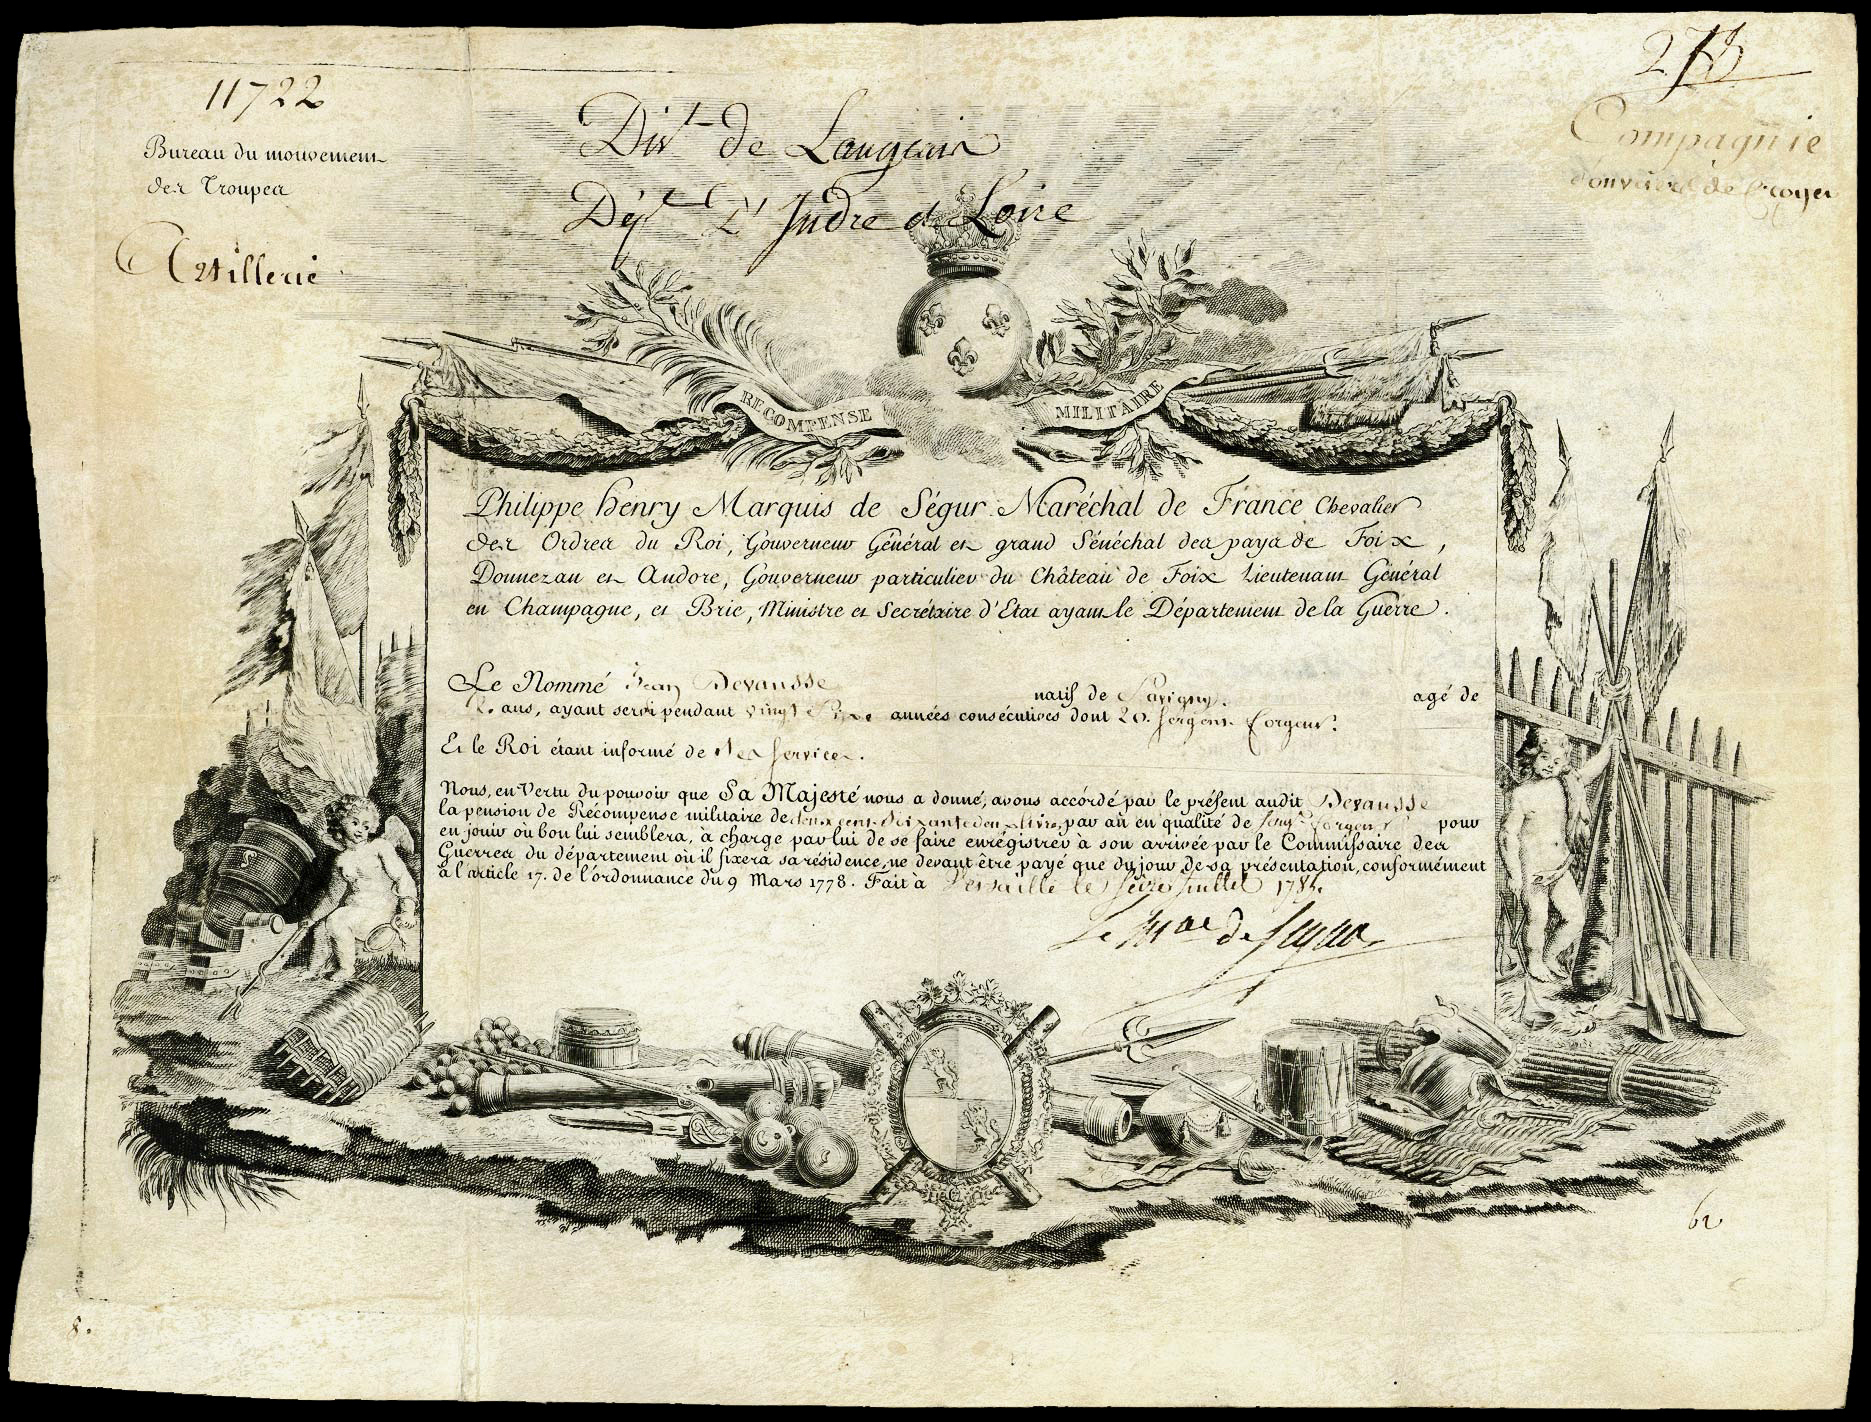 11722
Bureau du mouvement
des Troupes
Artillerie
Dist de Langeais
Dépt D'Indre et Loire
Compagnie
d'ouvriers de
RECOMPENSE MILITAIRE
Philippe henry Marquis de Ségur Maréchal de France Chevalier
des Ordres du Roi, Gouverneur Général et grand Sénéchal des pays de Foix,
Donnezan et Andore, Gouverneur particulier du Château de Foix Lieutenant Général
en Champagne, et Brie, Ministre et Secrétaire d'Etat ayant le Département de la Guerre.
Le Nommé Jean Devausse natif de Savigny. agé de
ans, ayant servi pendant vingt années consécutives dont 20. Sergent
Et le Roi étant informé de ses services.
Nous, en Vertu du pouvoir que Sa Majesté nous a donné, avons accordé par le présent audit Devausse
la pension de Récompense militaire de par an en qualité de pour
en jouir où bon lui semblera, à charge par lui de se faire enrégistrer à son arrivée par le Commissaire des
Guerres du département où il fixera sa résidence, ne devant être payé que du jour de sa présentation, conformément
à l'article 17. de l'ordonnance du 9 Mars 1778. Fait à Versaille le Juillet
Le Mal de Segur
8.